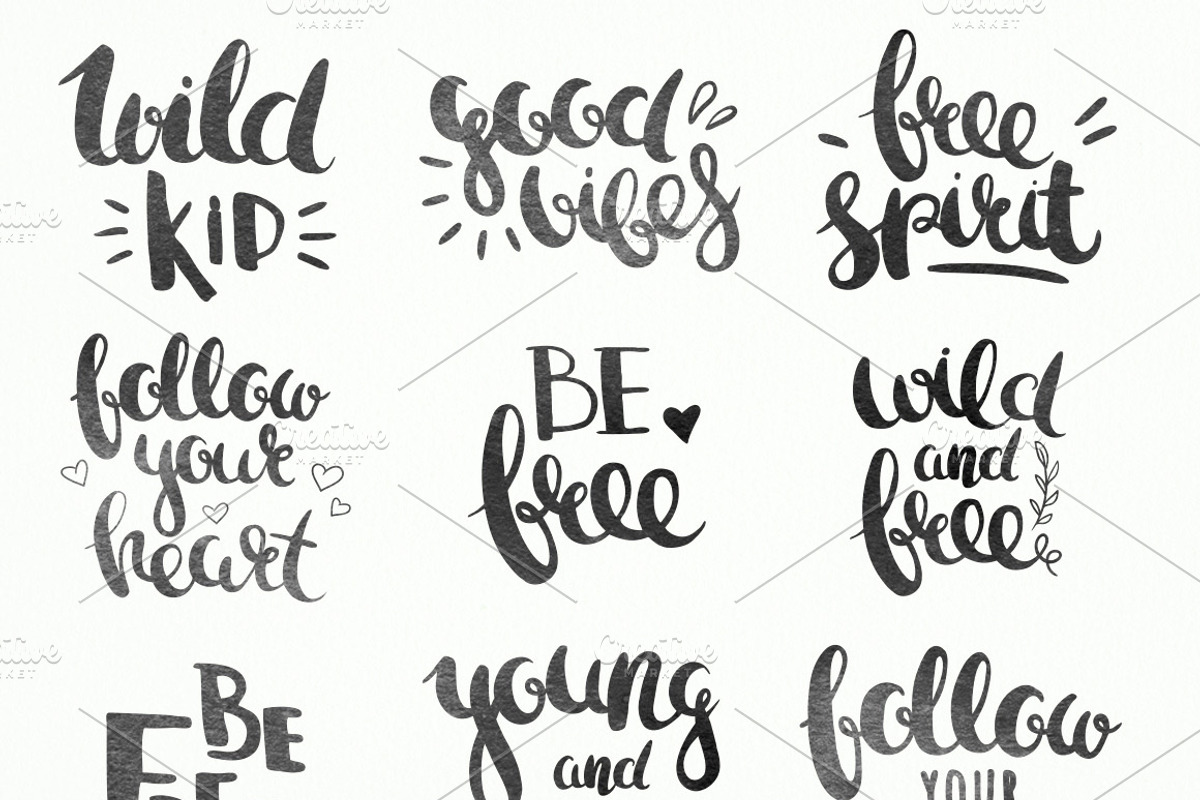 wild
KiD
good
vibes
free
spirit
follow
your
heart
BE
free
wild
and
free
BE
young
and
follow
YOUR
Creative
MARKET